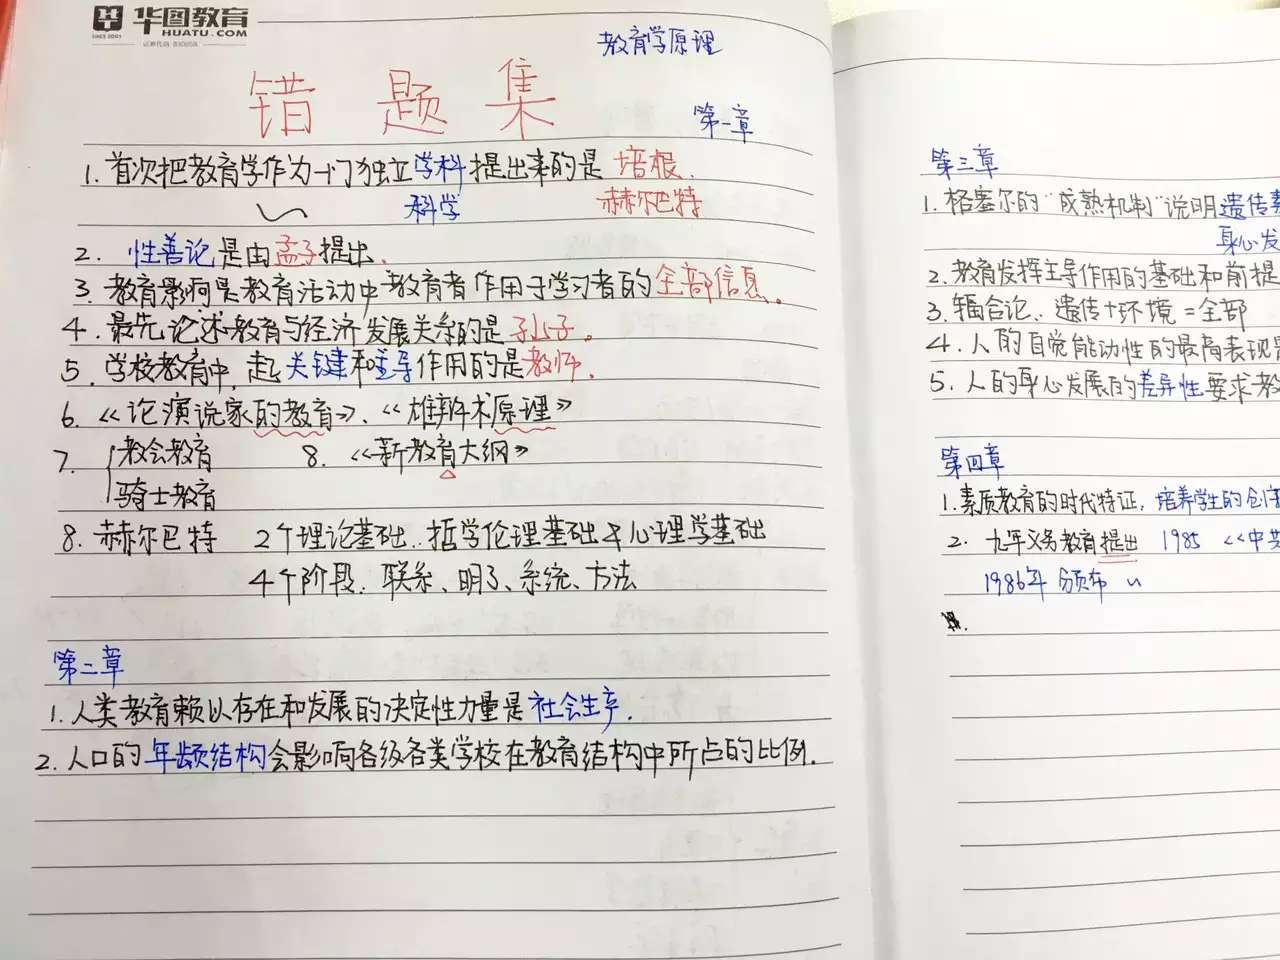 华图教育
HUATU.COM
SINCE 2001
教育学原理
错题集
第一章
1. 首次把教育学作为一门独立学科提出来的是 培根.
科学 赫尔巴特
2. 性善论是由孟子提出.
3. 教育影响是教育活动中教育者作用于学习者的全部信息。
4. 最先论述教育与经济发展关系的是孔子。
5. 学校教育中,起关键和主导作用的是教师.
6. 《论演说家的教育》、《雄辩术原理》
7. 教会教育 8. 《新教育大纲》
骑士教育
8. 赫尔巴特 2个理论基础:哲学伦理基础 & 心理学基础
4个阶段:联系、明了、系统、方法
第二章
1. 人类教育赖以存在和发展的决定性力量是社会生产.
2. 人口的年龄结构会影响各级各类学校在教育结构中所占的比例.
第三章
1. 格塞尔的"成熟机制"说明遗传素
身心发
2. 教育发挥主导作用的基础和前提
3. 辐合论:遗传+环境=全部
4. 人的自觉能动性的最高表现是
5. 人的身心发展的差异性要求教
第四章
1. 素质教育的时代特征,培养学生的创
2. 九年义务教育提出 1985 《中共
1986年 颁布 〃